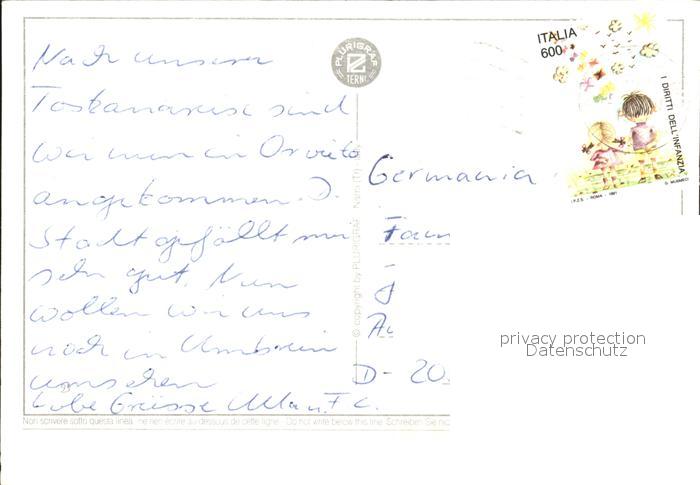 Nach unserer
Toskanareise sind
wir nun in Orvieto
angekommen. D.
Stadt gefällt mir
sehr gut. Nun
wollen wir uns
noch in Umbrien
umsehen
Liebe Grüsse
PLURIGRAF
TERNI
ITALIA
600
I DIRITTI DELL'INFANZIA
I.P.Z.S. - ROMA - 1991
Germania
Fam
D- 20
© copyright by PLURIGRAF Narni (TR)
privacy protection
Datenschutz
Non scrivere sotto questa linea. ne rien écrire au dessous de cette ligne. Do not write below this line. Schreiben Sie nic